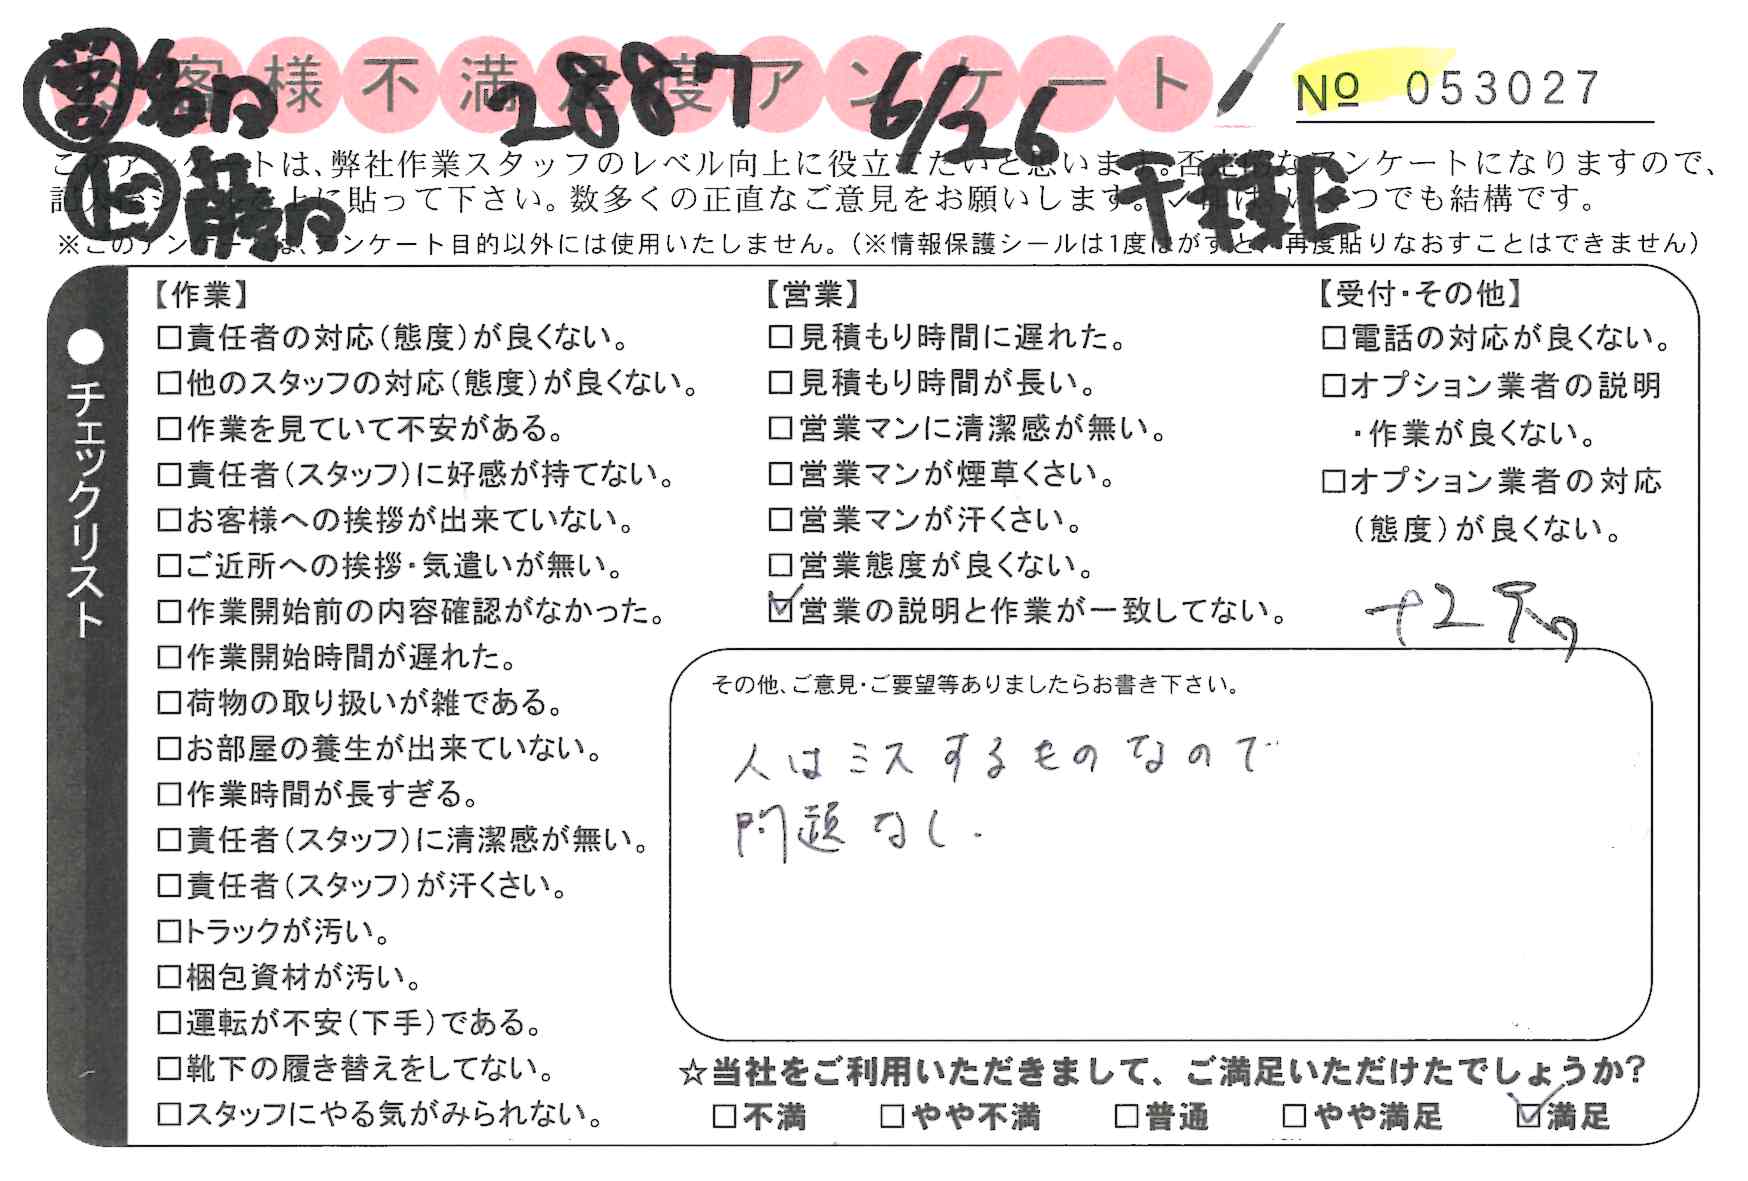 お客様不満足度アンケート
2887 6/26
No 053027
このアンケートは、弊社作業スタッフのレベル向上に役立てたいと思います。否定的なアンケートになりますので、
記入後シールを上に貼って下さい。数多くの正直なご意見をお願いします。いくつでも結構です。
千種区
※このアンケートは、アンケート目的以外には使用いたしません。（※情報保護シールは1度はがすと、再度貼りなおすことはできません）
●チェックリスト
【作業】
□責任者の対応（態度）が良くない。
□他のスタッフの対応（態度）が良くない。
□作業を見ていて不安がある。
□責任者（スタッフ）に好感が持てない。
□お客様への挨拶が出来ていない。
□ご近所への挨拶・気遣いが無い。
□作業開始前の内容確認がなかった。
□作業開始時間が遅れた。
□荷物の取り扱いが雑である。
□お部屋の養生が出来ていない。
□作業時間が長すぎる。
□責任者（スタッフ）に清潔感が無い。
□責任者（スタッフ）が汗くさい。
□トラックが汚い。
□梱包資材が汚い。
□運転が不安（下手）である。
□靴下の履き替えをしてない。
□スタッフにやる気がみられない。
【営業】
□見積もり時間に遅れた。
□見積もり時間が長い。
□営業マンに清潔感が無い。
□営業マンが煙草くさい。
□営業マンが汗くさい。
□営業態度が良くない。
☑営業の説明と作業が一致してない。
【受付・その他】
□電話の対応が良くない。
□オプション業者の説明
・作業が良くない。
□オプション業者の対応
（態度）が良くない。
その他、ご意見・ご要望等ありましたらお書き下さい。
人はミスするものなので
問題なし.
☆当社をご利用いただきまして、ご満足いただけたでしょうか?
□不満 □やや不満 □普通 □やや満足 ☑満足